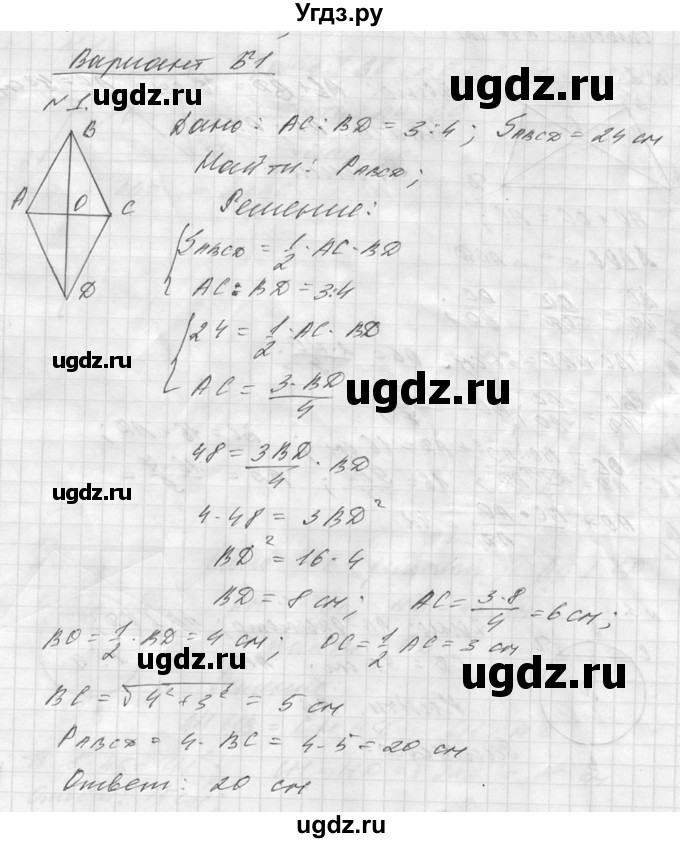 Угдз.ру
Вариант Б1
ugdz.ru ugdz.ru
N 1.
B
Дано: AC:BD = 3:4; S_ABCD = 24 см
Найти: P_ABCD;
A O C
Решение:
S_ABCD = 1/2 · AC · BD
D
AC : BD = 3:4
24 = 1/2 · AC · BD
ugdz.ru ugdz.ru
AC = 3·BD/4
48 = 3BD/4 · BD
ugdz.ru
4·48 = 3BD²
BD² = 16·4
BD = 8 см; AC = 3·8/4 = 6 см;
BO = 1/2 · BD = 4 см; OC = 1/2 AC = 3 см
ugdz.ru ugdz.ru
BC = √4²+3² = 5 см
P_ABCD = 4·BC = 4·5 = 20 см
Ответ: 20 см
ugdz.ru
ugdz.ru